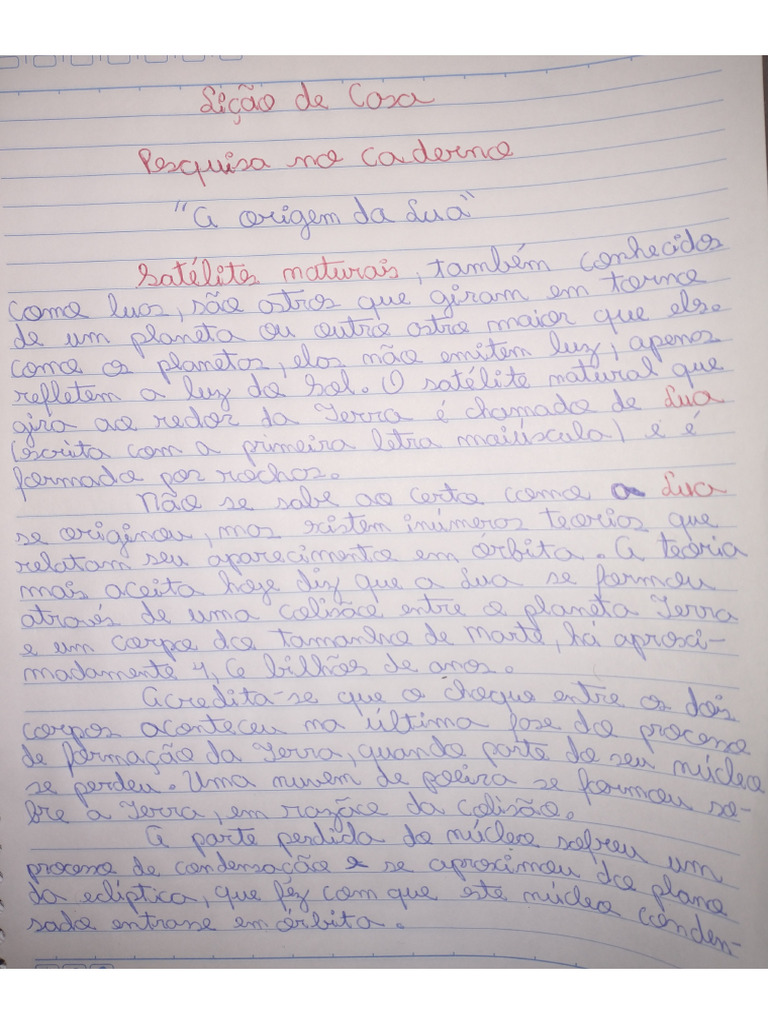 Lição de Casa
Pesquisa no caderno
"A origem da Lua"
Satélites naturais, também conhecidos
como luas, são astros que giram em torno
de um planeta ou outro astro maior que eles.
como os planetas, elas não emitem luz, apenas
refletem a luz do Sol. O satélite natural que
gira ao redor da Terra é chamado de Lua
(escrita com a primeira letra maiúscula) e é
formado por rochas.
Não se sabe ao certo como a Lua
se originou, mas existem inúmeros teorias que
relatam seu aparecimento em órbita. A teoria
mais aceita hoje diz que a Lua se formou
através de uma colisão entre o planeta Terra
e um corpo do tamanho de marte, há aproxi-
madamente 4,6 bilhões de anos.
Acredita-se que o choque entre os dois
corpos aconteceu na última fase do processo
de formação da Terra, quando parte do seu núcleo
se perdeu. Uma nuvem de poeira se formou so-
bre a Terra, em razão da colisão.
A parte perdida do núcleo sofreu um
processo de condensação e se aproximou do plano
da eclíptica, que fez com que este núcleo conden-
sado entrase em órbita.